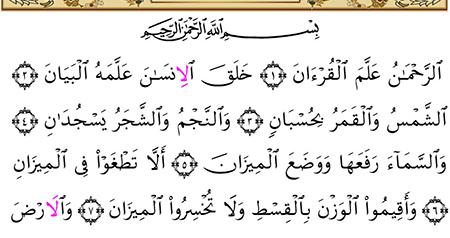 بِسْمِ اللَّهِ الرَّحْمَٰنِ الرَّحِيمِ
الرَّحْمَٰنُ عَلَّمَ الْقُرْءَانَ ﴿١﴾ خَلَقَ الِانسَٰنَ عَلَّمَهُ الْبَيَانَ ﴿٢﴾
الشَّمْسُ وَالْقَمَرُ بِحُسْبَانٍ ﴿٣﴾ وَالنَّجْمُ وَالشَّجَرُ يَسْجُدَانِ ﴿٤﴾
وَالسَّمَآءَ رَفَعَهَا وَوَضَعَ الْمِيزَانَ ﴿٥﴾ أَلَّا تَطْغَوْا۟ فِى الْمِيزَانِ
﴿٦﴾ وَأَقِيمُوا الْوَزْنَ بِالْقِسْطِ وَلَا تُخْسِرُوا الْمِيزَانَ ﴿٧﴾ وَالَارْضَ